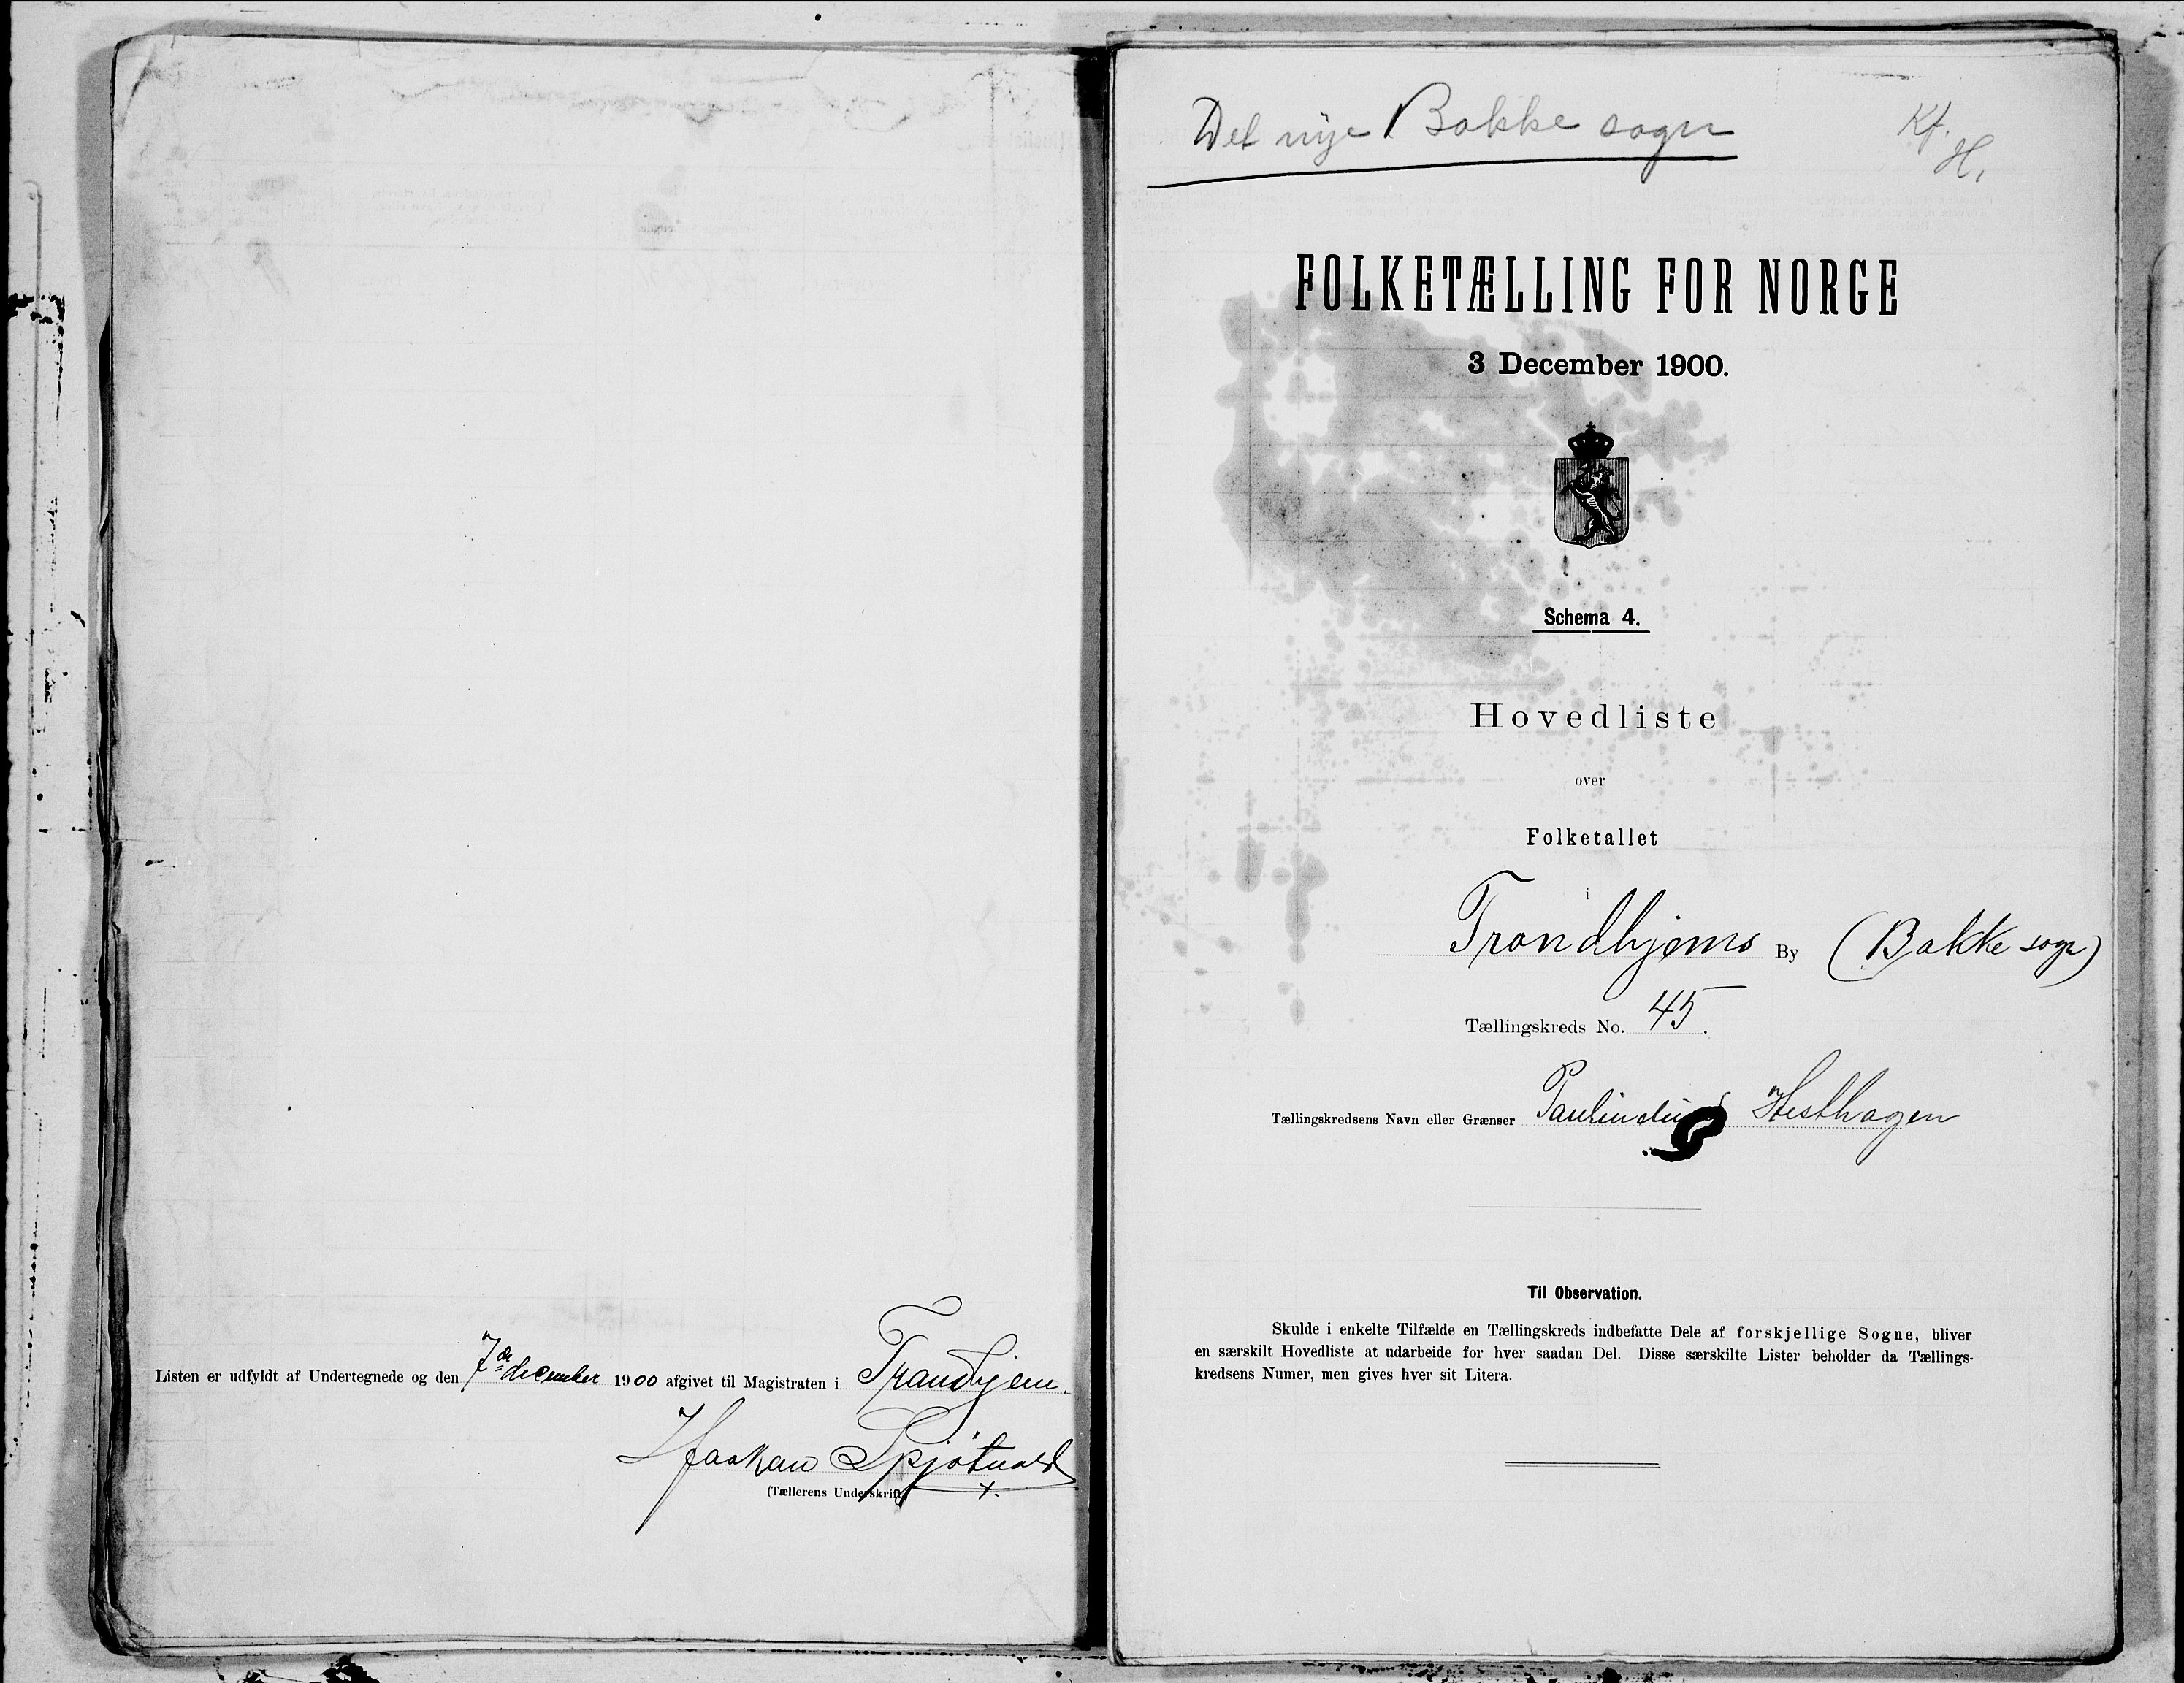 Listen er udfyldt af Undertegnede og den 7de december 1900 afgivet til Magistraten i Trondhjem.
Haakan Spjøtvold
(Tællerens Underskrift)
Det nye Bakke sogn
Kf.
H.
FOLKETÆLLING FOR NORGE
3 December 1900.
Schema 4.
Hovedliste
over
Folketallet
i
Trondhjems By (Bakke sogn)
Tællingskreds No. 45.
Tællingskredsens Navn eller Grænser Hesthagen
Til Observation.
Skulde i enkelte Tilfælde en Tællingskreds indbefatte Dele af forskjellige Sogne, bliver
en særskilt Hovedliste at udarbeide for hver saadan Del. Disse særskilte Lister beholder da Tællings-
kredsens Numer, men gives hver sit Litera.